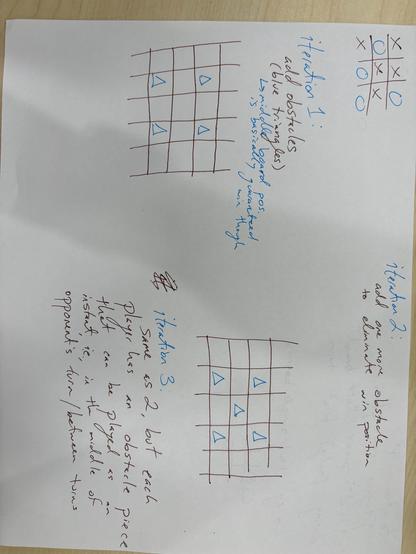 X X O
O X X
X O O
iteration 1:
add obstacles
(blue triangles)
↳ middle board pos.
is basically guaranteed
win though
iteration 2:
add one more obstacle
to eliminate win position
iteration 3:
Same as 2, but each
player has an obstacle piece
that can be played as an
instant, ie, in the middle of
opponent's turn/between turns